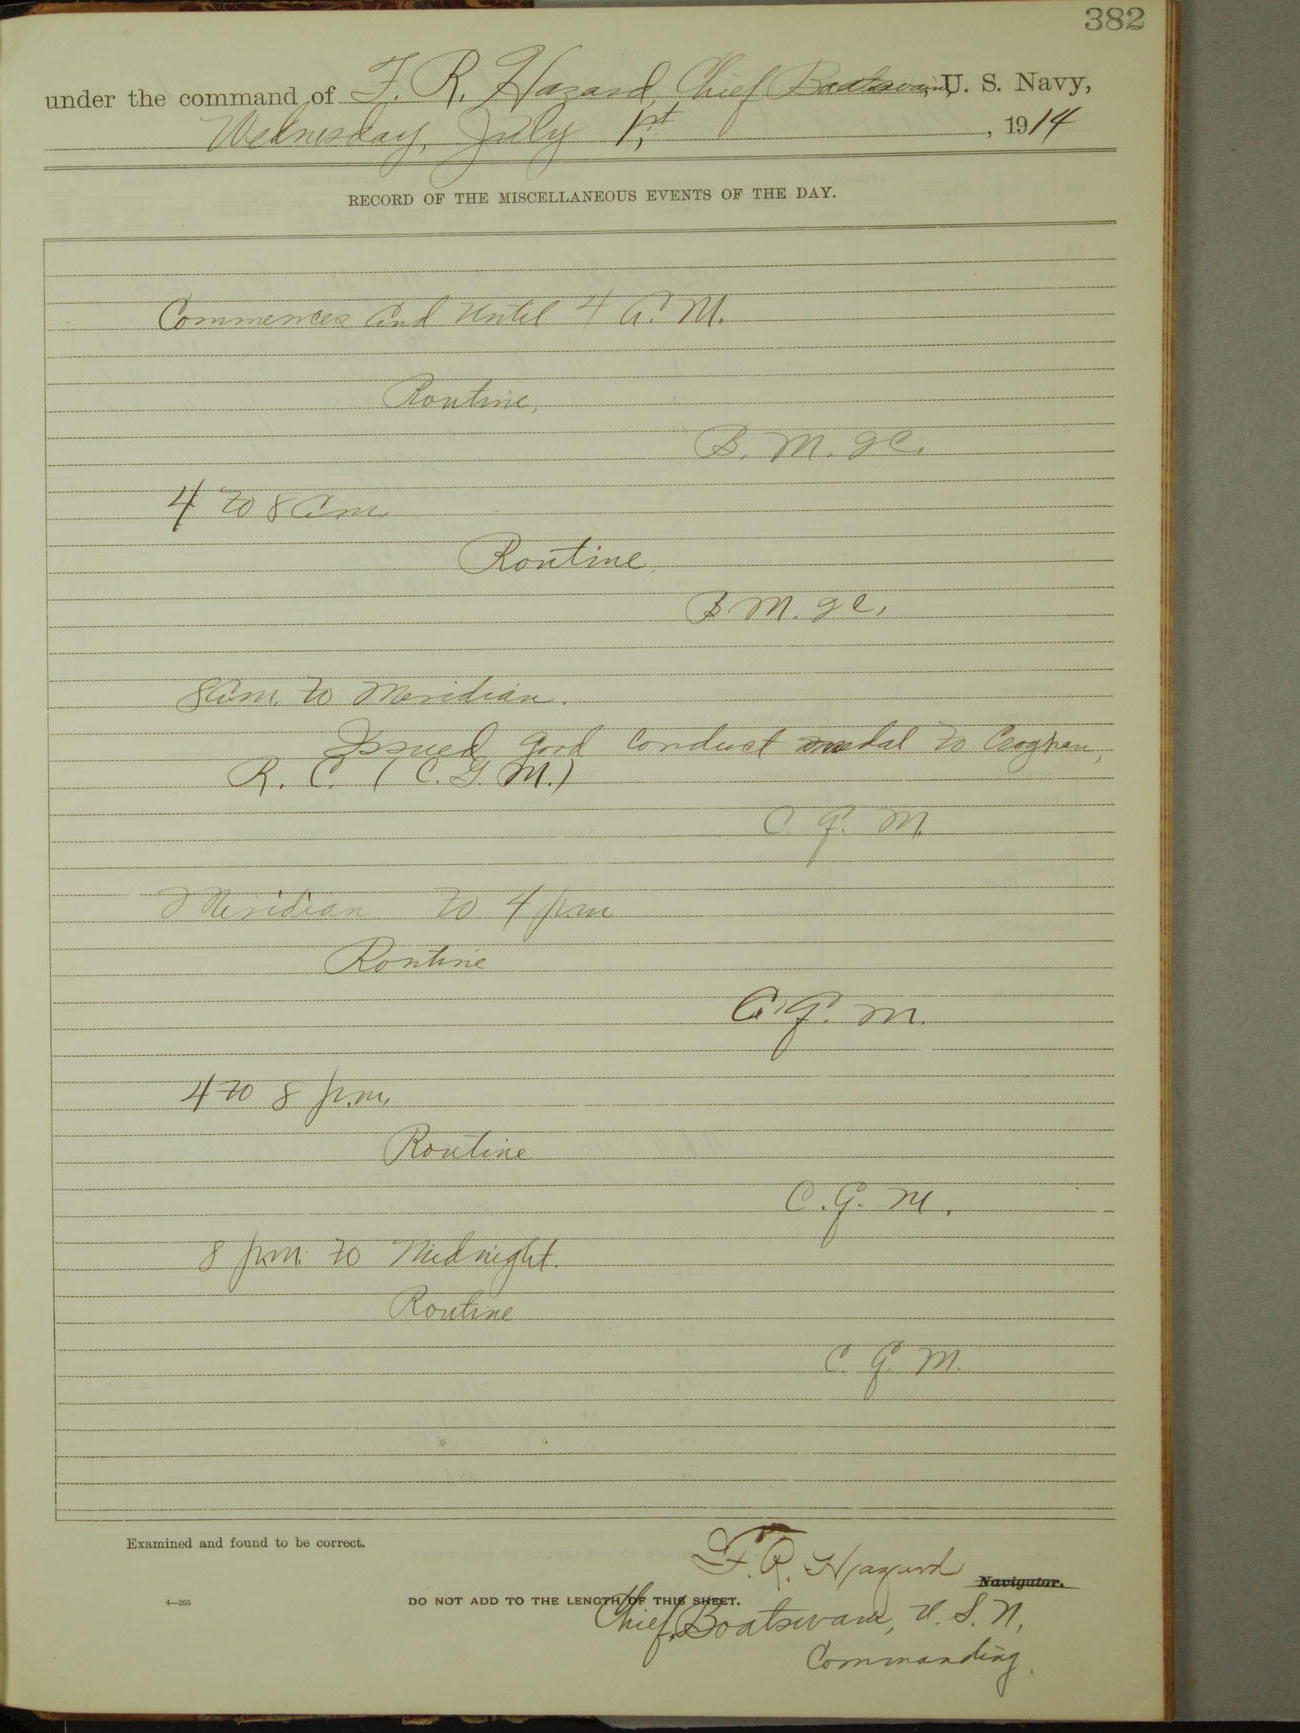 382
under the command of F. R. Hazard, Chief Boatswain, U. S. Navy,
Wednesday, July 1st, 1914
RECORD OF THE MISCELLANEOUS EVENTS OF THE DAY.
Commences and Until 4 A. M.
Routine,
B. M. 2c.
4 to 8 am
Routine.
B M. 2c,
8 am. to Meridian.
Issued good conduct medal to Croghan,
R. C. ( C. G. M.)
C G. M.
Meridian to 4 p.m
Routine
C. G. M.
4 to 8 p.m.
Routine
C. G. M.
8 p.m. to Midnight.
Routine
C. G. M.
Examined and found to be correct.
F. R. Hazard
Navigator.
4—265
DO NOT ADD TO THE LENGTH OF THIS SHEET.
Chief Boatswain, U. S. N,
Commanding.